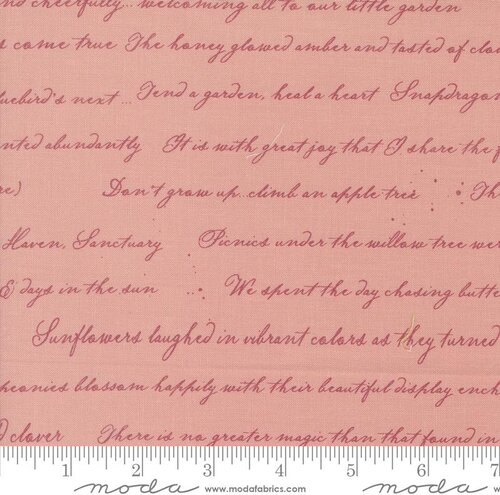 nd cheerfully... welcoming all to our little garden
s come true The honey glowed amber and tasted of clo
luebird's next... Tend a garden, heal a heart Snapdragon
nted abundantly It is with great joy that I share the f
re) Don't grow up...climb an apple tree Th
Haven, Sanctuary Picnics under the willow tree we
& days in the sun We spent the day chasing butte
Sunflowers laughed in vibrant colors as they turned
peonies blossom happily with their beautiful display ench
d clover There is no greater magic than that found in
1 2 3 4 5 6 7
moda www.modafabrics.com moda